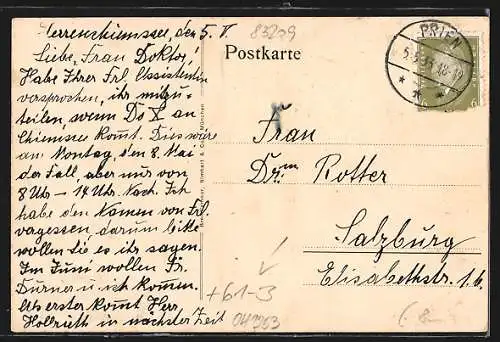 Herrenchiemsee, den 5. V.
Liebe, Frau Doktor!
Habe Ihrer Frl. Assistentin
versprochen, ihr mitzu-
teilen, wenn Do X an
Chiemsee kommt. Dies wäre
am Montag, den 8. Mai
der Fall, aber nur von
8 Uhr – 14 Uhr Nach. Ich
habe den Namen von Frl.
vergessen, darum bitte
wollen Sie es ihr sagen.
Im Juni wollen Fr.
u. ich kommen.
Als erster kommt Herr
in nächster Zeit
83209
Postkarte
PRIEN
6
6
Frau
Dr. Rotter
Salzburg
Elisabethstr. 1.
+61-3